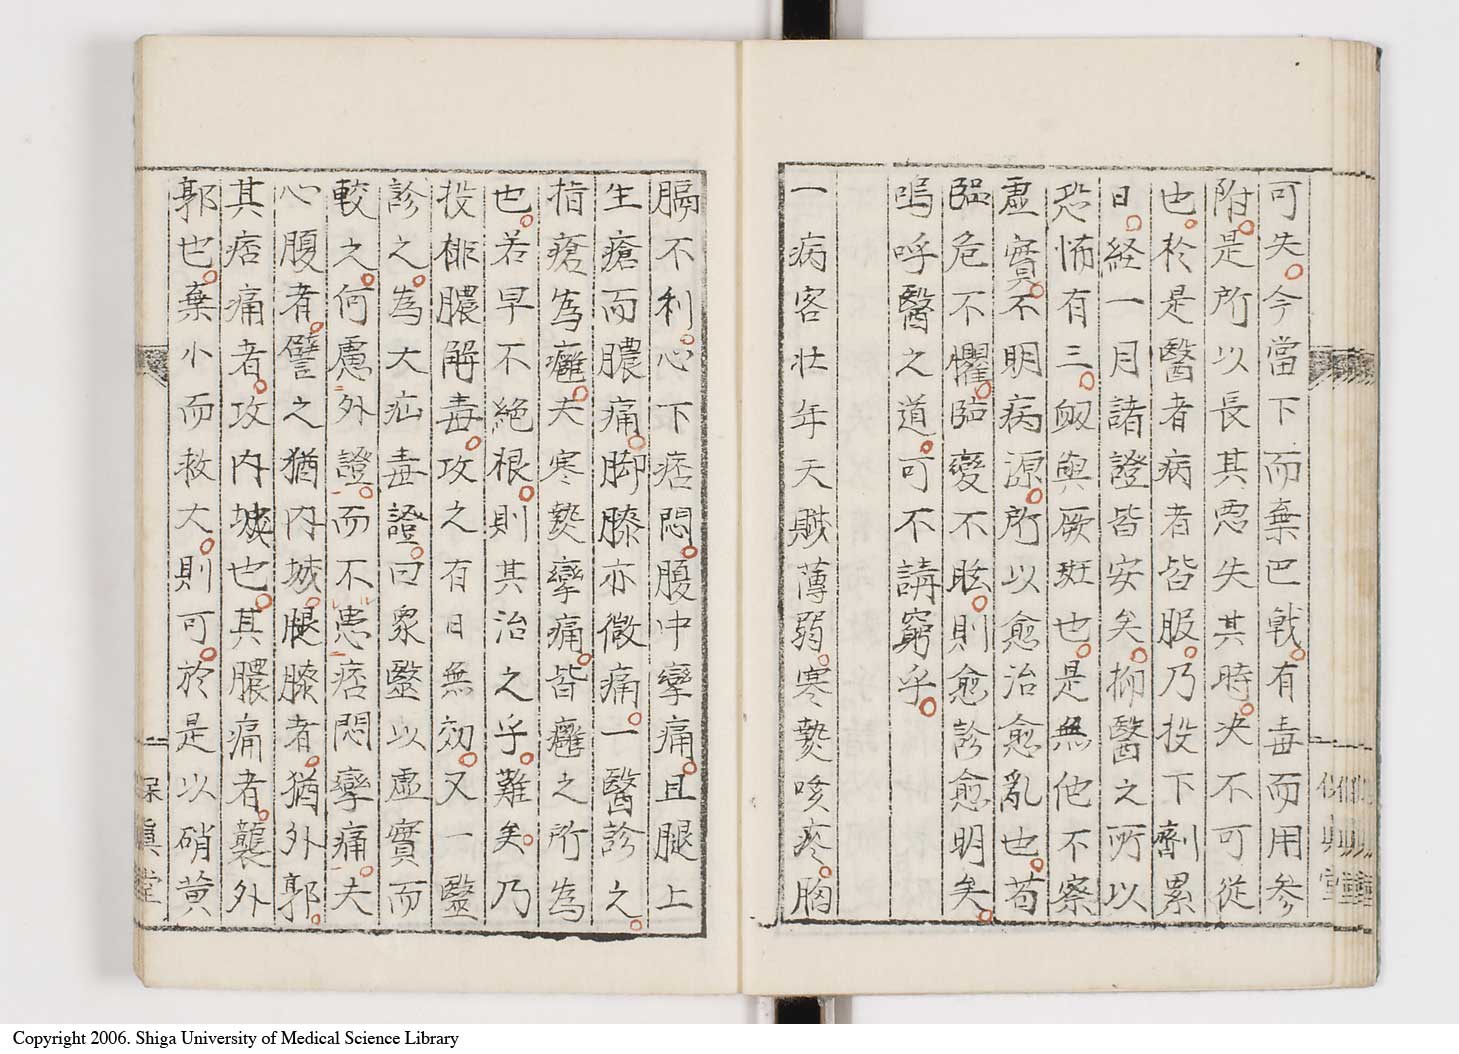 可失今當下而棄巴戟有毒而用参
附是所以長其悪失其時決不可從
也於是醫者病者皆服乃投下劑累
日経一月諸證皆安矣抑醫之所以
恐怖有三衂與厥斑也是無他不察
虚實不明病源所以愈治愈亂也苟
臨危不懼臨變不眩則愈診愈明矣
嗚呼醫之道可不講窮乎
一病客壮年天賦薄弱寒熱咳疼胸
膈不利心下痞悶腹中攣痛且腿上
生瘡而膿痛脚膝亦微痛一醫診之
指瘡為癰夫寒熱攣痛皆癰之所為
也若早不絶根則其治之乎難矣乃
投排膿解毒攻之有日無効又一醫
診之為大疝毒證曰衆醫以虚實而
較之何慮外證而不患痞悶攣痛夫
心腹者譬之猶内城腿膝者猶外郭
其痞痛者攻内城也其膿痛者襲外
郭也棄小而救大則可於是以硝黄
保真堂
Copyright 2006. Shiga University of Medical Science Library